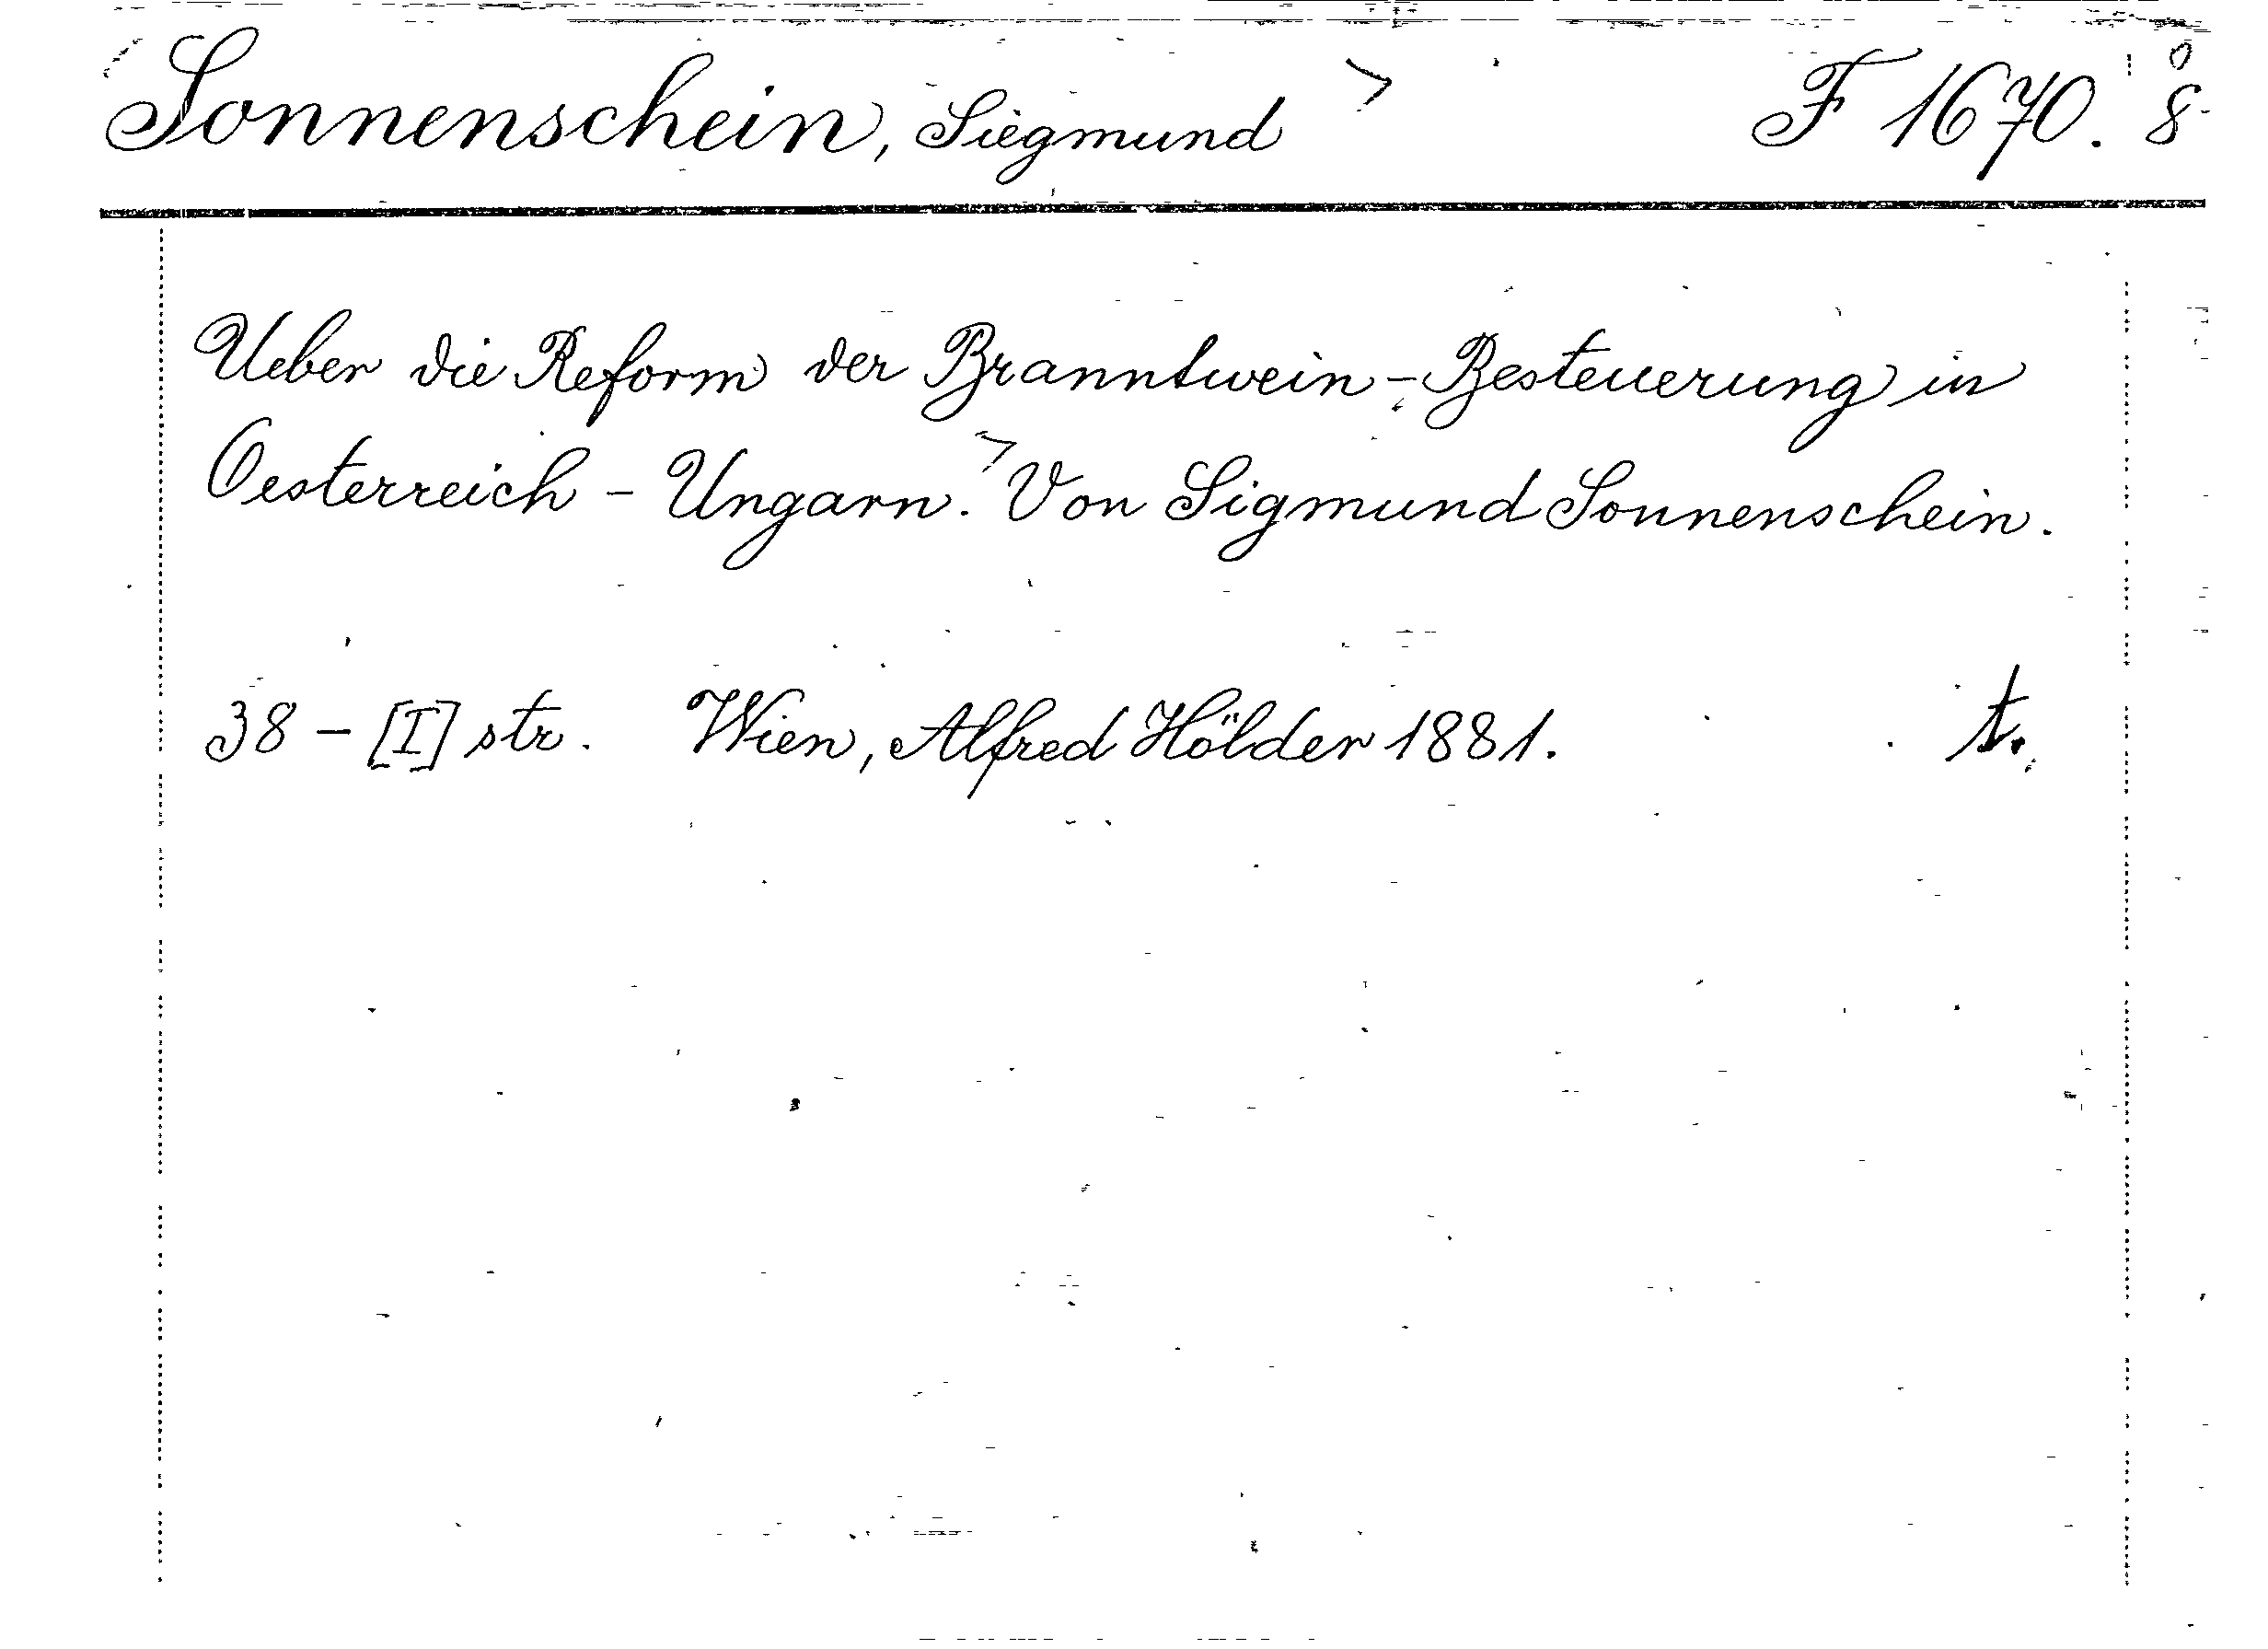 Sonnenschein, Siegmund F 1670. 8°
Ueber die Reform der Branntwein-Besteuerung in
Oesterreich - Ungarn. Von Sigmund Sonnenschein.
38 - [I] str. Wien, Alfred Hölder 1881. t.